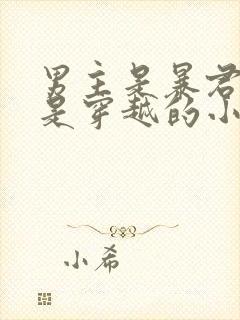 男主是暴君
是穿越的小
小希